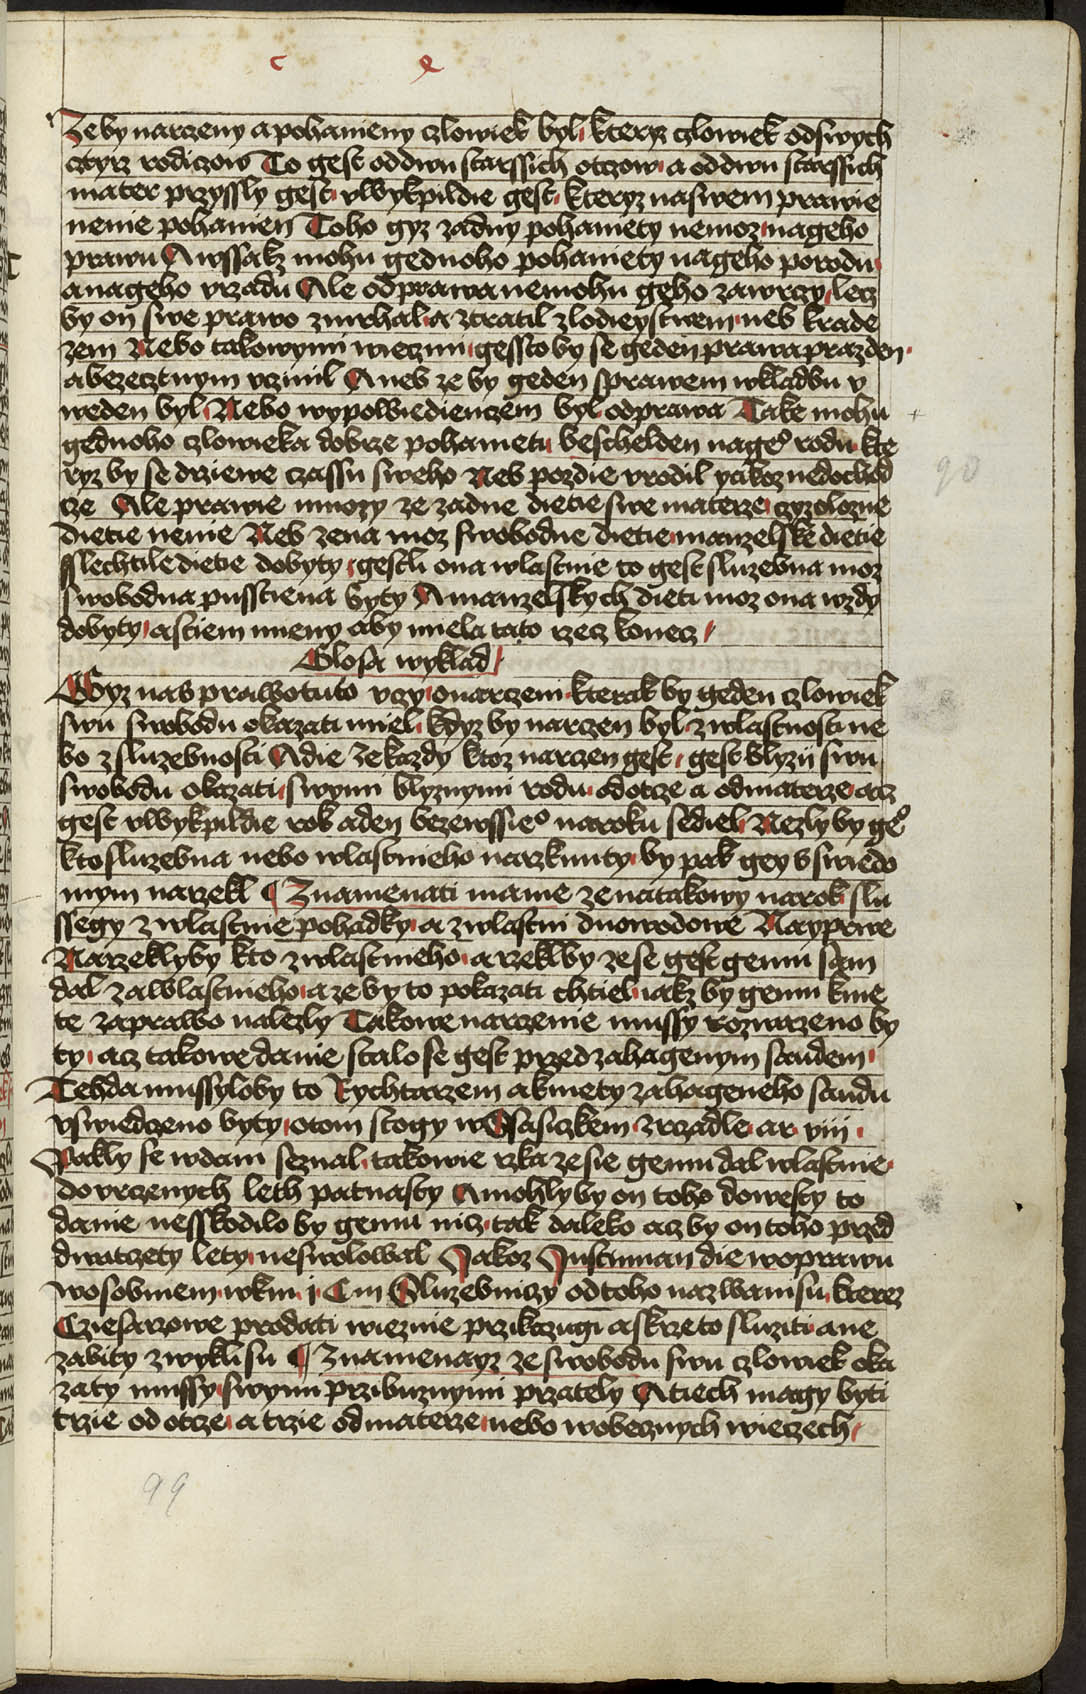 c e
Zeby narzeny a pohanieny czlowiek byl kteryz czlowiek odswych
cztyrz rodiczow To gest oddwu starssich otczow a oddwu starssich
mater przyssly gest vWykpildie gest kteryz naswem prawie
nenie pohanien Toho gyz zadny pohaniety nemoz nageho
prawu Awssak mohu gednoho pohaniety nageho porodu
anageho vrzadu Ale odprawa nemohu geho zawrczy lecz
by on swe prawo zmrhal a ztratil zlodieystwem neb krade
zem Nebo takowymi wieczmi gessto by se geden prawa prazden
a bezecztnym vczinil Aneb ze by geden sprawem wkladbu v
weden byl Nebo wypowiedienczem byl odprawa Take mohu
gednoho czlowieka dobrze pohanietu beschelden nage° rodu kte
ryz by se drziewe czassu sweho Neb pozdie vrodil yakoz nedochod
cze Ale prawie mnozy ze zadne dietie swe materze czyzolozne
dietie nenie Neb zena moz swobodne dietie manzelske dietie
sslechtile dietie dobyty gestli ona wlastnie to gest sluzebna moz
swobodna pusstiena byty Amanzelskych dieti moz ona wzdy
dobyty astiem mieny aby miela tato rzecz konecz
Glosa wyklad
Gyz nas prawo tuto vczy onarczeni kterak by geden czlowiek
swu swobodu okazati miel kdyz by narczen byl zwlastnosti ne
bo zsluzebnosti Adie Ze kazdy ktoz narczen gest gest blyzii swu
swobodu okazati swymi blyznymi rodu odotcze a odmaterze acz
gest vWykpildie rok aden bezewssie° naroku sediel Nezly by ge°
kto sluzebna nebo wlastnieho narzknuty by pak gey vswiedo
mym narzekl ¶ Znamenati mame ze natakowy narok slu
ssegy zwlastnie pohadky a zwlastni duowodowe Nayprwe
Narzeklyby kto zwlastnieho a rzeklby ze se gest gemu sam
dal zawlastnieho a ze by to pokazati chtiel iakz by gemu kme
te zaprawo nalezly Takowe narczenie mussy rozwazeno by
ty acz takowe danie stalo se gest przed zahagenym saudem
Tehda mussyloby to Rychtarzem a kmety zahageneho saudu
vswiedczeno byty otom stogy wSasiczkem zrzadle ar viij
Pakly se wdani seznal takowie rzka ze sie gemu dal wlastnie
do vrczenych leth patnasty A mohlyby on toho dowesty to
danie nesskodilo by gemu nicz tak daleko acz by on toho przed
dwatczety lety neswolowal Jakoz Justinian die woprawu
wosobniem wkni j C iij Sluzebniczy odtoho nazwani su kterez
Cziesarzowe prodati wieznie przikazugi a skrzeto sluziti a ne
zabity zwykli su ¶ Znamenayz ze swobodu swu czlowiek oka
zaty mussy swymi przibuznymi przately A tiech magy byti
trzie od otcze a trzie od materze nebo wobecznych wieczech
90
99